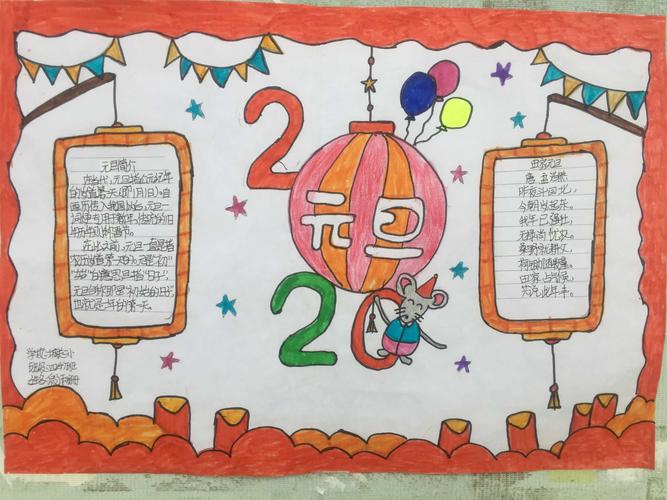 20
元旦
20
元旦简介
在当代,元旦指公元纪年
的岁首第一天(即1月1日)。自
西历传入我国以后,元旦一
词便专用于新年,传统的旧
年历则称春节。
在此之前,元旦一直是指
农历岁首第一天的。元是"初"
"始"的意思,旦指"日子",
元旦合称即是"初始的日子",
也就是一年的第一天。
田家元旦
唐 孟浩然
昨夜斗回北,
今朝岁起东。
我年已强仕,
无禄尚忧农。
桑野就耕父,
荷锄随牧童。
田家占气候,
共说此年丰。
学校:
班级:
姓名: